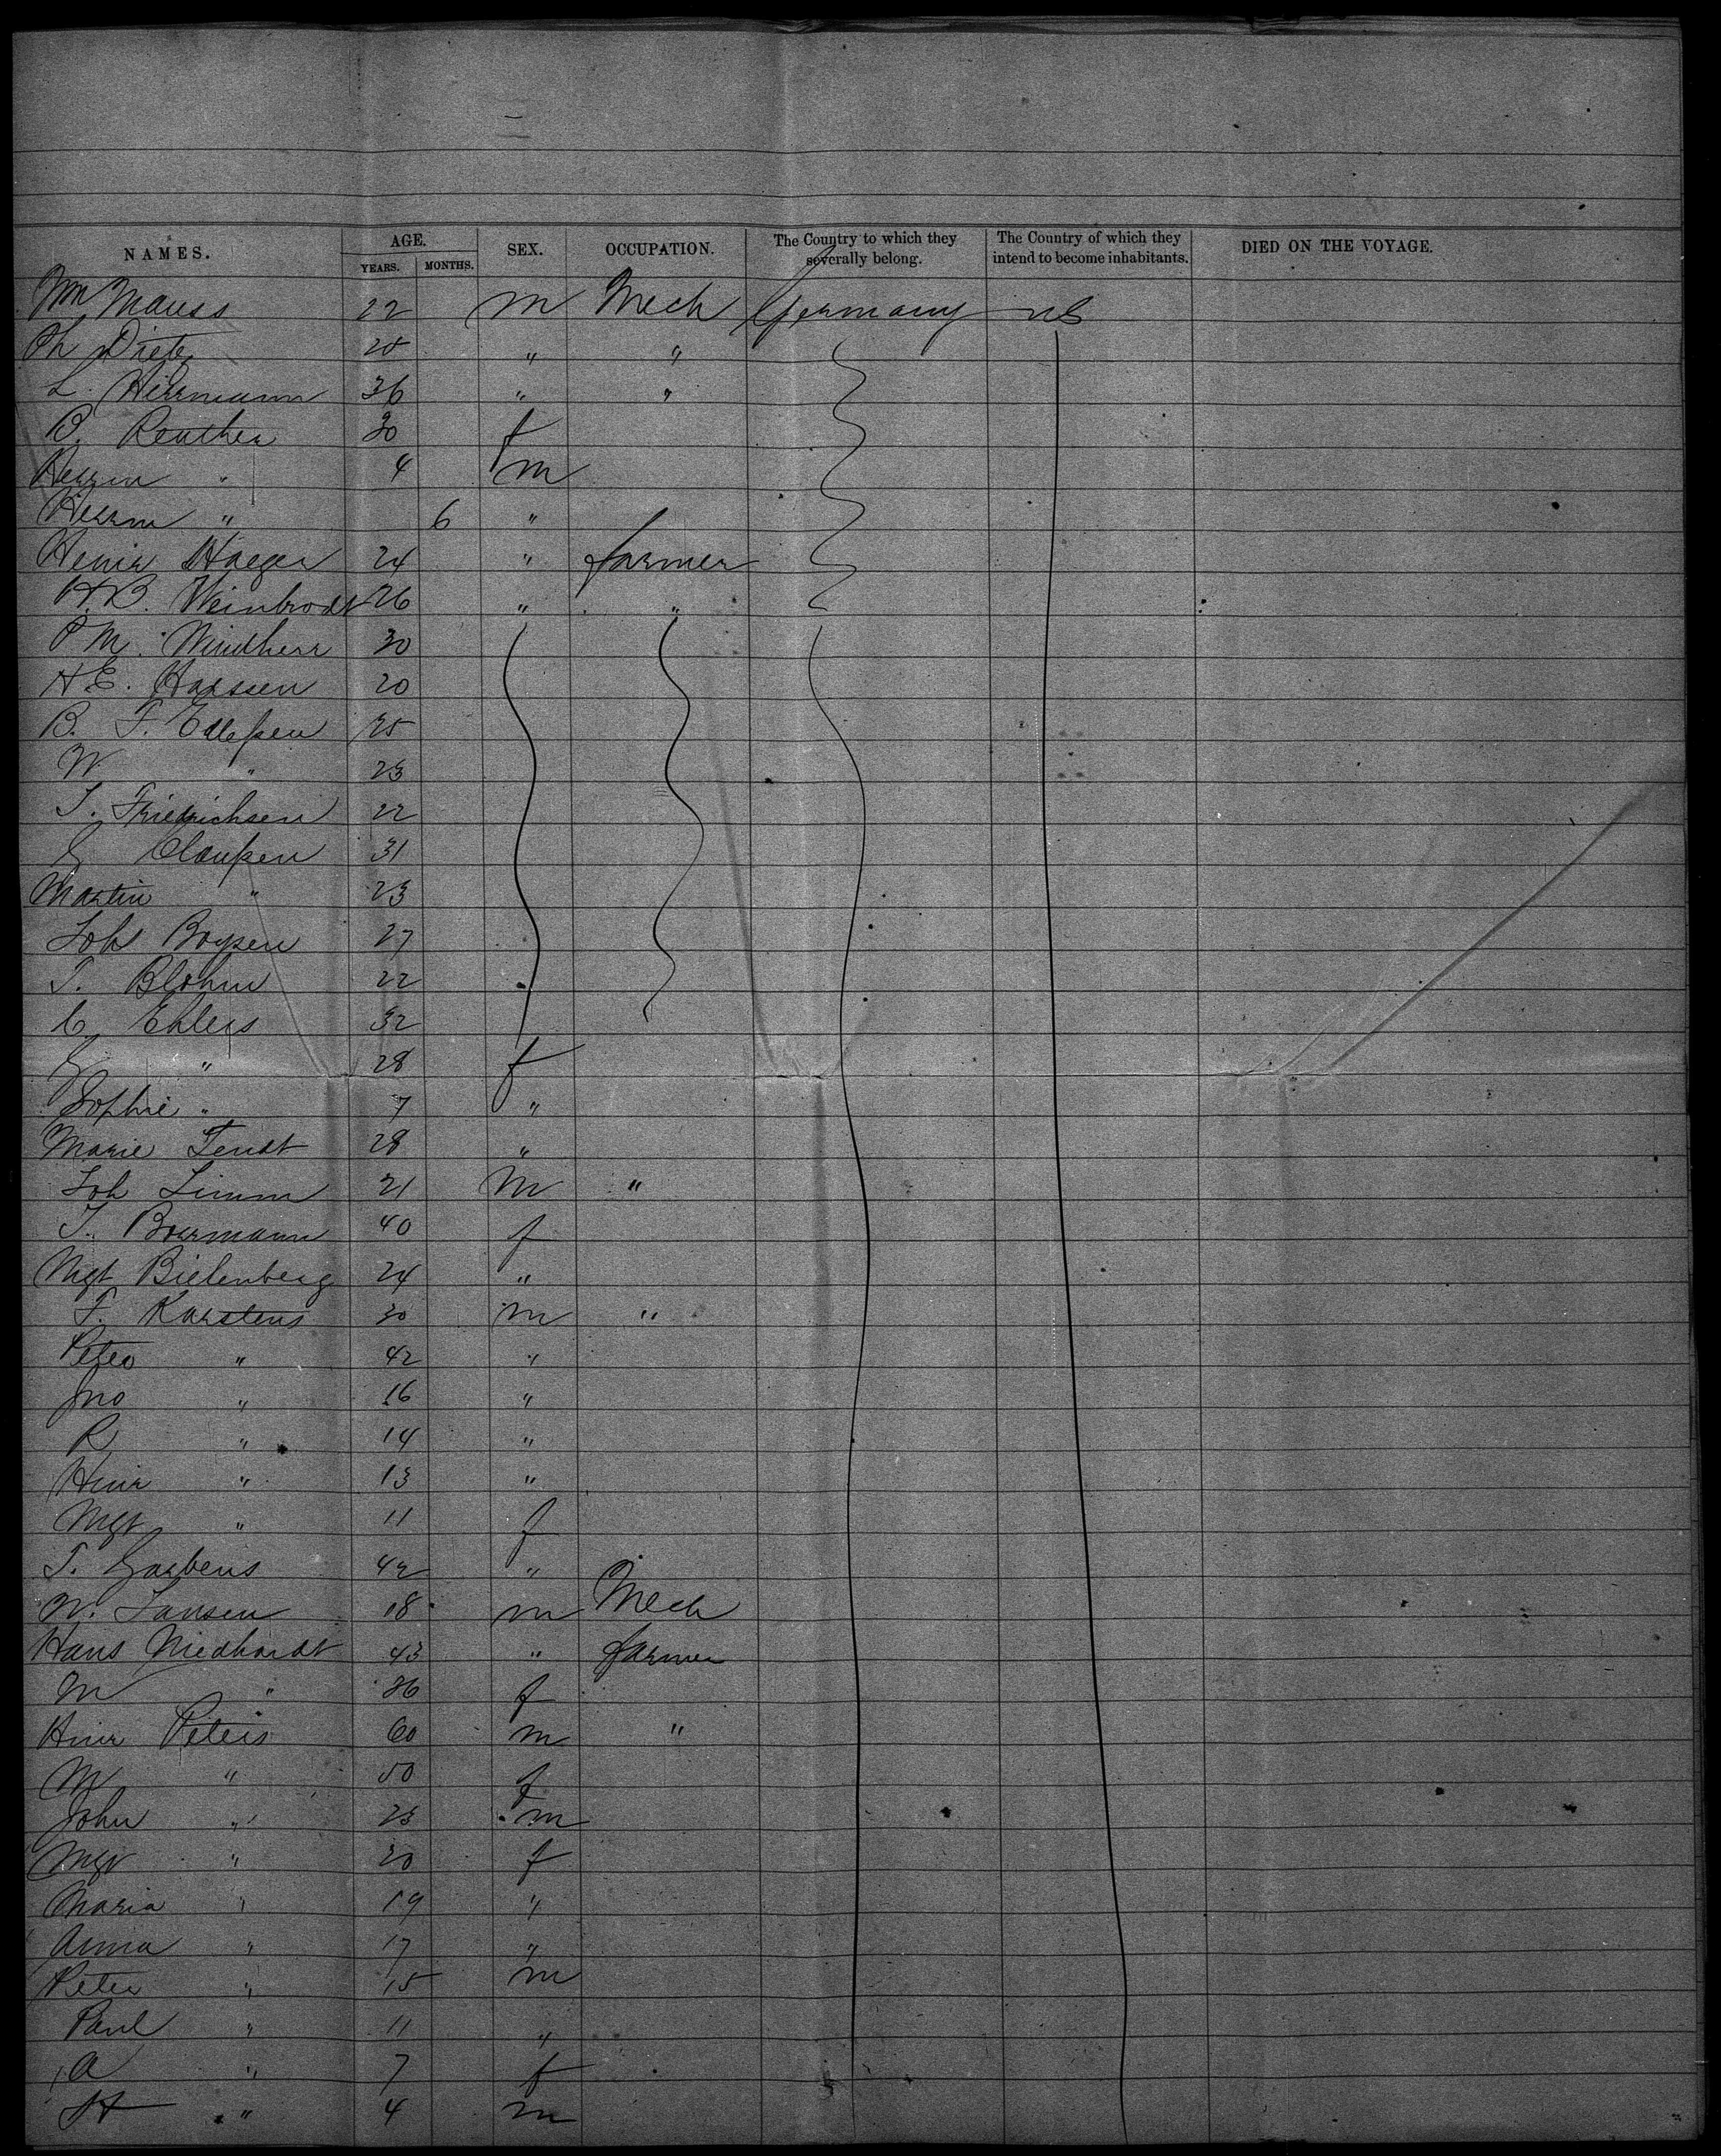 NAMES. AGE. SEX. OCCUPATION. The Country to which they severally belong. The Country of which they intend to become inhabitants. DIED ON THE VOYAGE.
YEARS. MONTHS.
Wm Mauss 22 m Mech Germany US
Ph Dietz 25 " "
L. Herrmann 36 " "
B. Reuther 30 f
Herrm " 4 m
Herrm " 6 "
Heinr Haeger 24 " farmer
H.B. Weinbrodt 26 " "
P M. 30
H E. Hassen 20
B. F. Edlefsen 25
W " 23
T. Friedrichsen 22
G Claussen 31
Martin " 23
Joh Boysen 27
T. Blohm 22
C. Ehlers 32
G " 28 f
Sophie " 7 "
Marie Tendt 28 "
Joh Timm 21 m "
T. Boermann 40 f
Mgt Bielenberg 24 "
F. Karstens 30 m "
Peter " 42 "
Jno " 16 "
R " 14 "
Heinr " 13 "
Mgt " 11 f
T. Garbens 42 "
N. Jansen 18 m Mech
Hans Niedhardt 43 " farmer
M " 36 f
Heinr Peters 60 m "
M " 50 f
John " 23 m
Mgt " 20 f
Maria " 19 "
Anna " 17 "
Peter " 15 m
Paul " 11 "
A " 7 f
H " 4 m